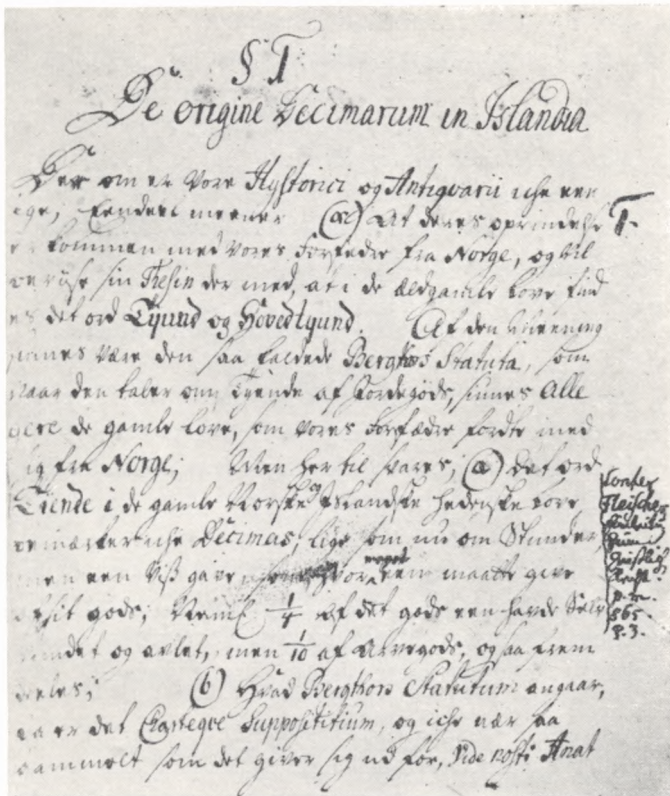 § 1
De origine Decimarum in Islandia
Der om er vore Hystorici og Antiqvarii iche een
ige, Eendeel meener (æ) At deres oprindelse
kommen med vores Forfædre fra Norge, og vil
beviise sin Thesin der med, at i de ældgamle Love find
es det ord Tijund og Hövedtijund. (Af den Meening
siunes være den saa kaldede Bergthors Statuta, som
naar den taler om Tyende af Jordegods, siunes Alle
gamle Love, som vores Forfædre fordte med
sig fra Norge; Men her til svares, (a) det ord
Tiende i de gamle Norske og Islandske hedenske Love
bemærker iche Decimas, lige som nu om Stunder,
men een viss gave, een maatte give
af sit gods; Neml. 1/4 af det gods een havde Selv
og avlet, men 1/10 af Arvegods, og saa frem
deeles; (b) Hvad Bergthors Statutum angaar,
saa er det Charteqve Supposititium, og iche nær saa
gammelt som det giver sig ud for, vide nosti Anat
T.
Confer
Fleischer
p. m.
565.
P. 3.